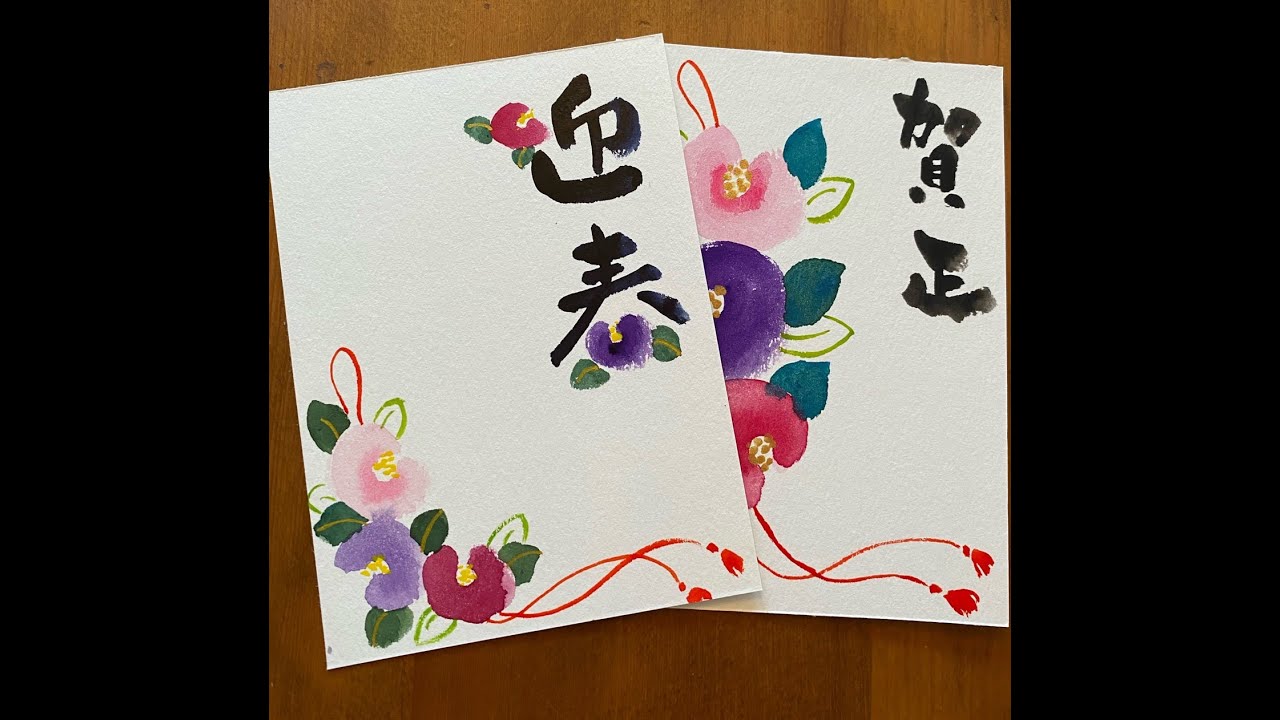 迎春
賀正